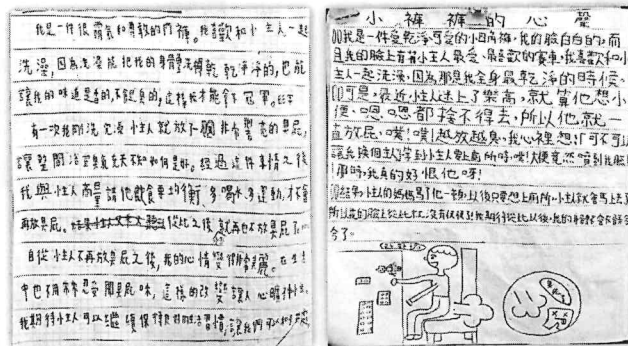 我是一件很霸氣和勇敢的內褲。我喜歡和小主人一起
洗澡,因為洗澡能把我的身體洗得乾乾淨淨的,也能
讓我的味道是香的,不是臭的,這樣我才能拿下冠軍。
有一次我剛洗完澡,小主人就放下一顆非常響亮的臭屁,
讓整間浴室臭氣充天不知如何是好。經過這件事情之後
我與小主人商量請他飲食要均衡、多喝水、多運動,才不會
再放臭屁。從此之後,就再也不放臭屁了
自從小主人不再放臭屁之後,我的心情變得很美麗。在生活
中也不用忍受聞臭屁味,這樣的改變讓人心曠神怡。
我期待小主人可以繼續保持良好的生活習慣,讓我們可以和平相處
小褲褲的心聲
我是一件愛乾淨可愛的小內褲,我的臉白白的,而
且我的臉上有著小主人最愛、最喜歡的賽車,我喜歡和小
主人一起洗澡,因為那是我全身最乾淨的時候。
可是,最近小主人迷上了樂高,就算他想小
便、嗯嗯都捨不得去,所以他就一
直放屁,噗!噗!越放越臭,我心裡想:「可不可以
讓我換個主人」等到小主人衝上廁所時,唉!大便竟然噴到我臉上
那時,我真的好恨他呀!
結果小主人的媽媽罵了他一頓,以後只要想上廁所,小主人就會馬上去
所以我的臉上從此